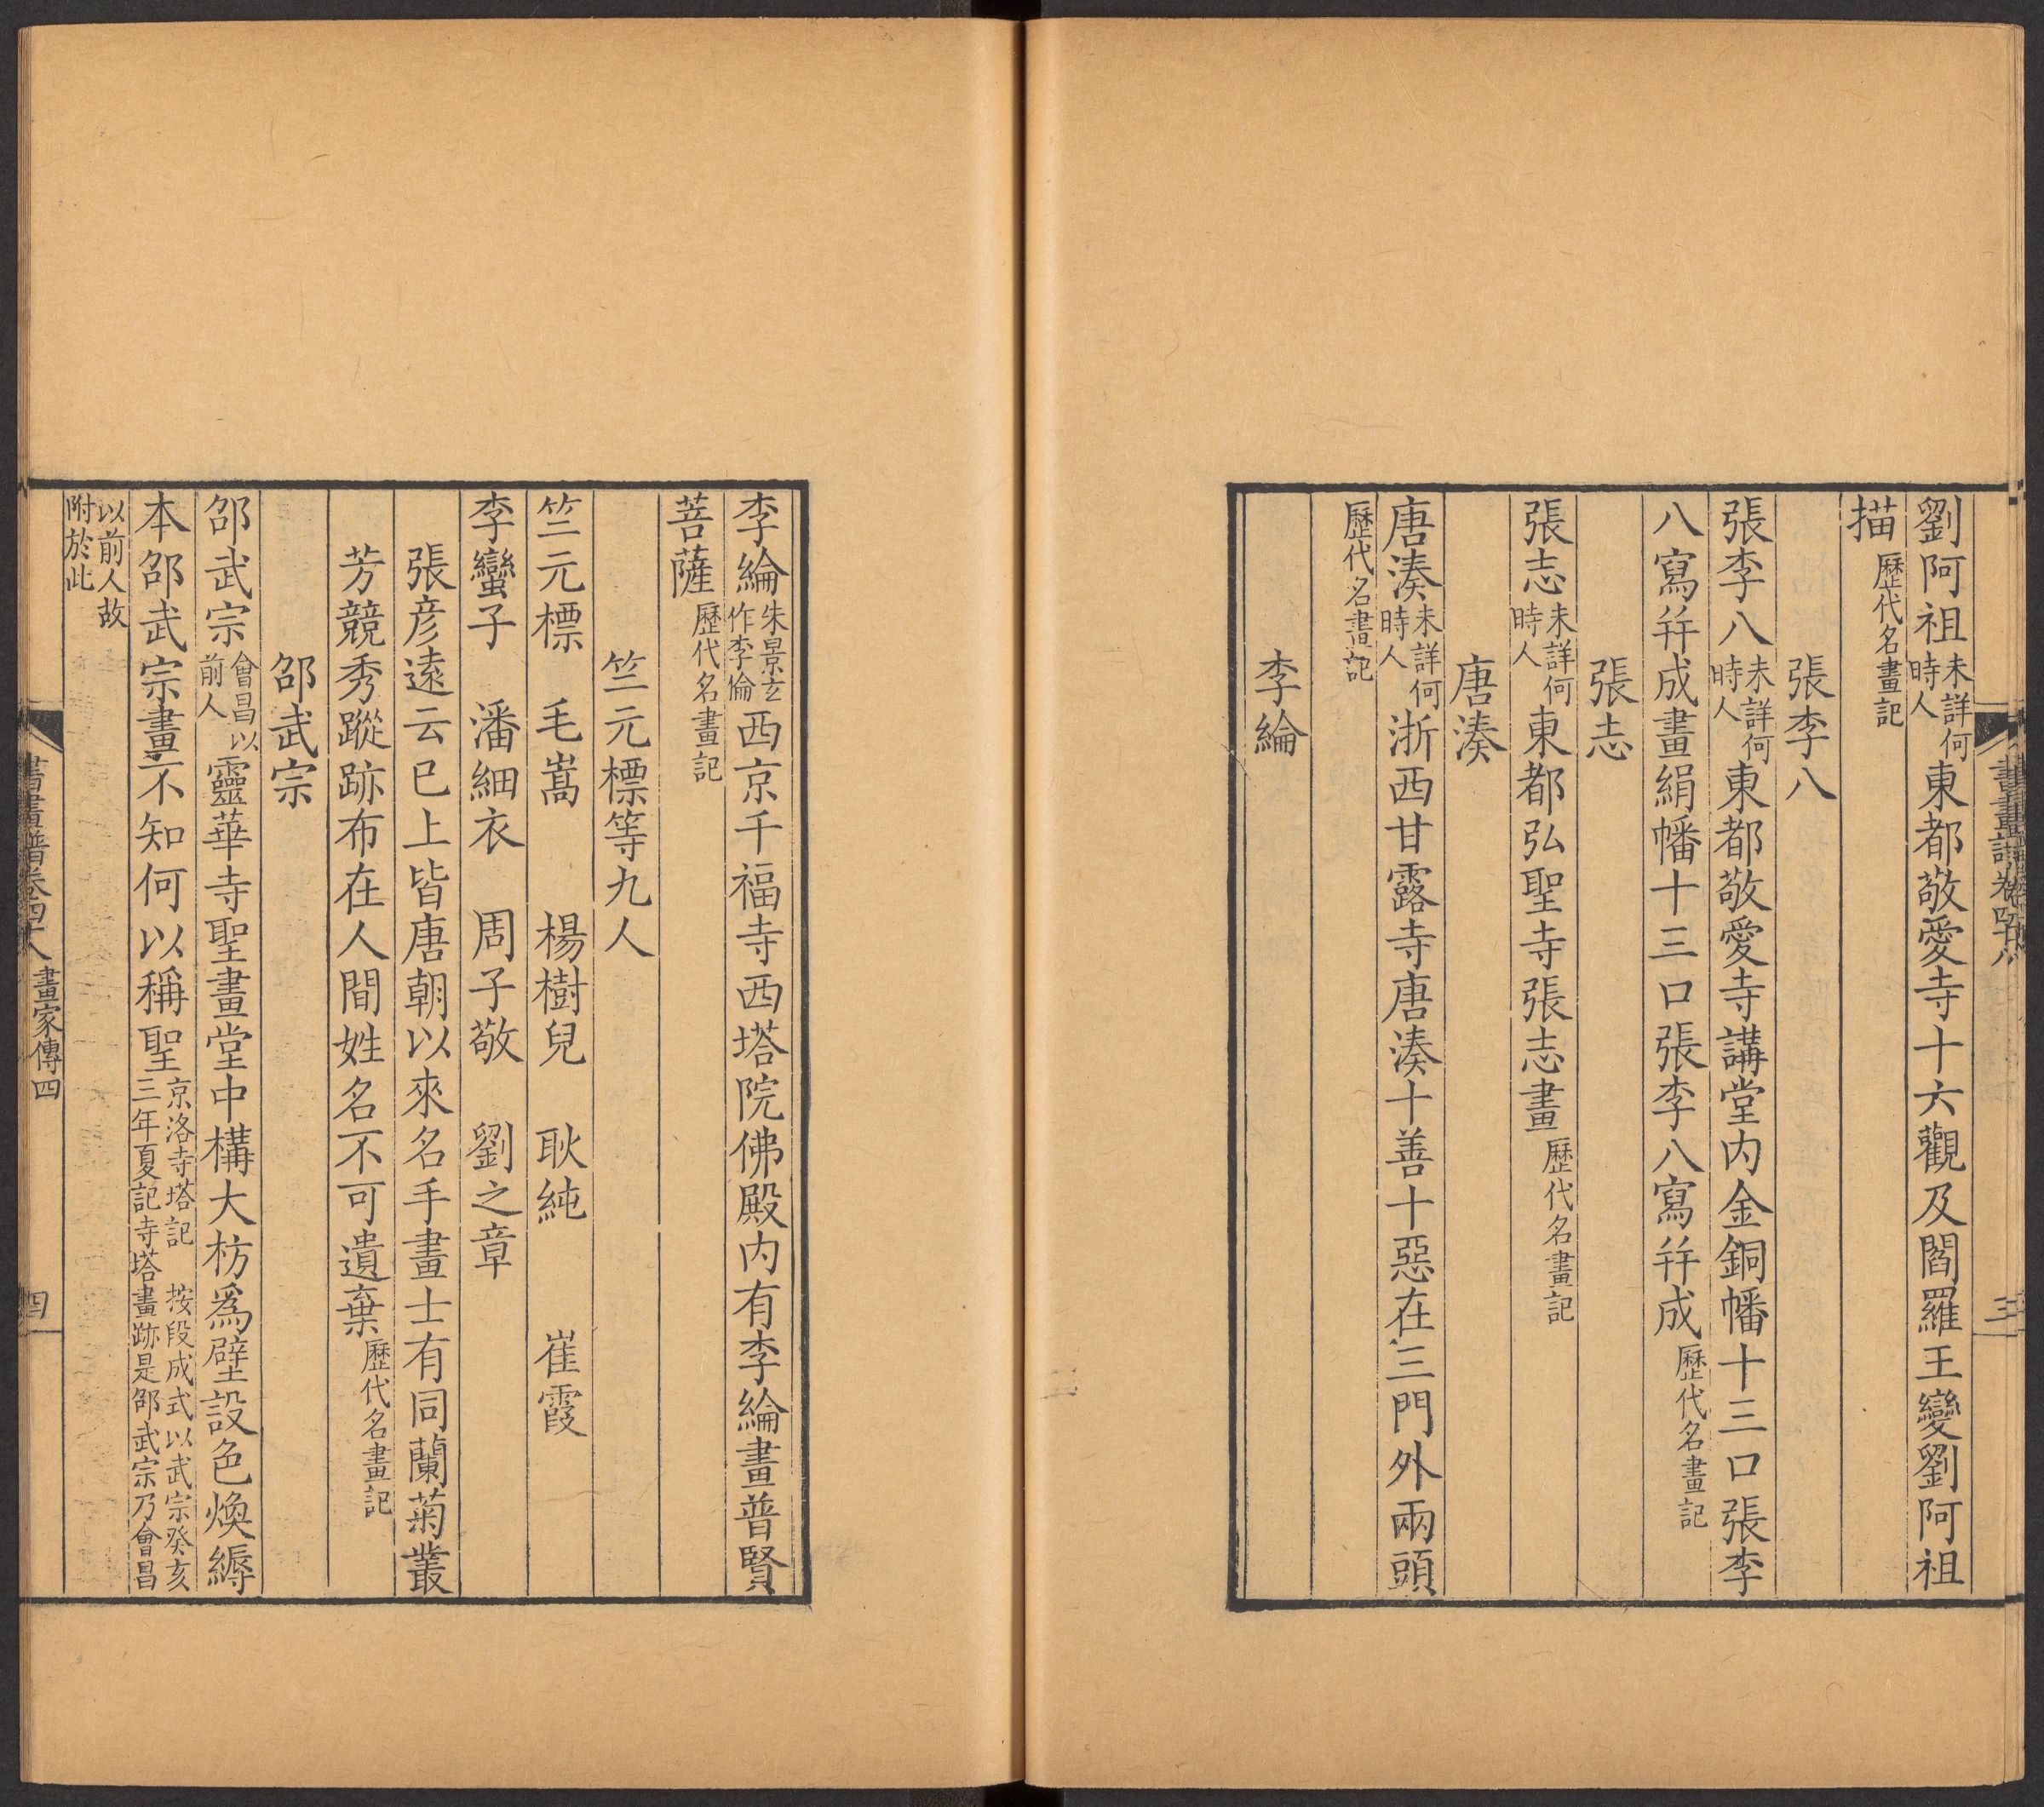 劉阿祖未詳何時人東都敬愛寺十六觀及閻羅王變劉阿祖
描歷代名畫記
張李八
張李八未詳何時人東都敬愛寺講堂内金銅幡十三口張李
八寫幷成畫絹幡十三口張李八寫幷成歷代名畫記
張志
張志未詳何時人東都弘聖寺張志畫歷代名畫記
唐湊
唐湊未詳何時人浙西甘露寺唐湊十善十惡在三門外兩頭
歷代名畫記
李綸
李綸朱景玄作李倫西京千福寺西塔院佛殿内有李綸畫普賢
菩薩歷代名畫記
竺元標等九人
竺元標 毛嵩 楊樹兒 耿純 崔霞
李蠻子 潘細衣 周子敬 劉之章
張彦遠云已上皆唐朝以來名手畫士有同蘭菊叢
芳競秀蹤跡布在人間姓名不可遺棄歷代名畫記
邵武宗
邵武宗會昌以前人靈華寺聖畫堂中構大枋爲壁設色煥縟
本邵武宗畫不知何以稱聖京洛寺塔記 按段成式以武宗癸亥三年夏記寺塔畫跡是邵武宗乃會昌
以前人故附於此
書畫譜卷四十八 畫家傳四 四